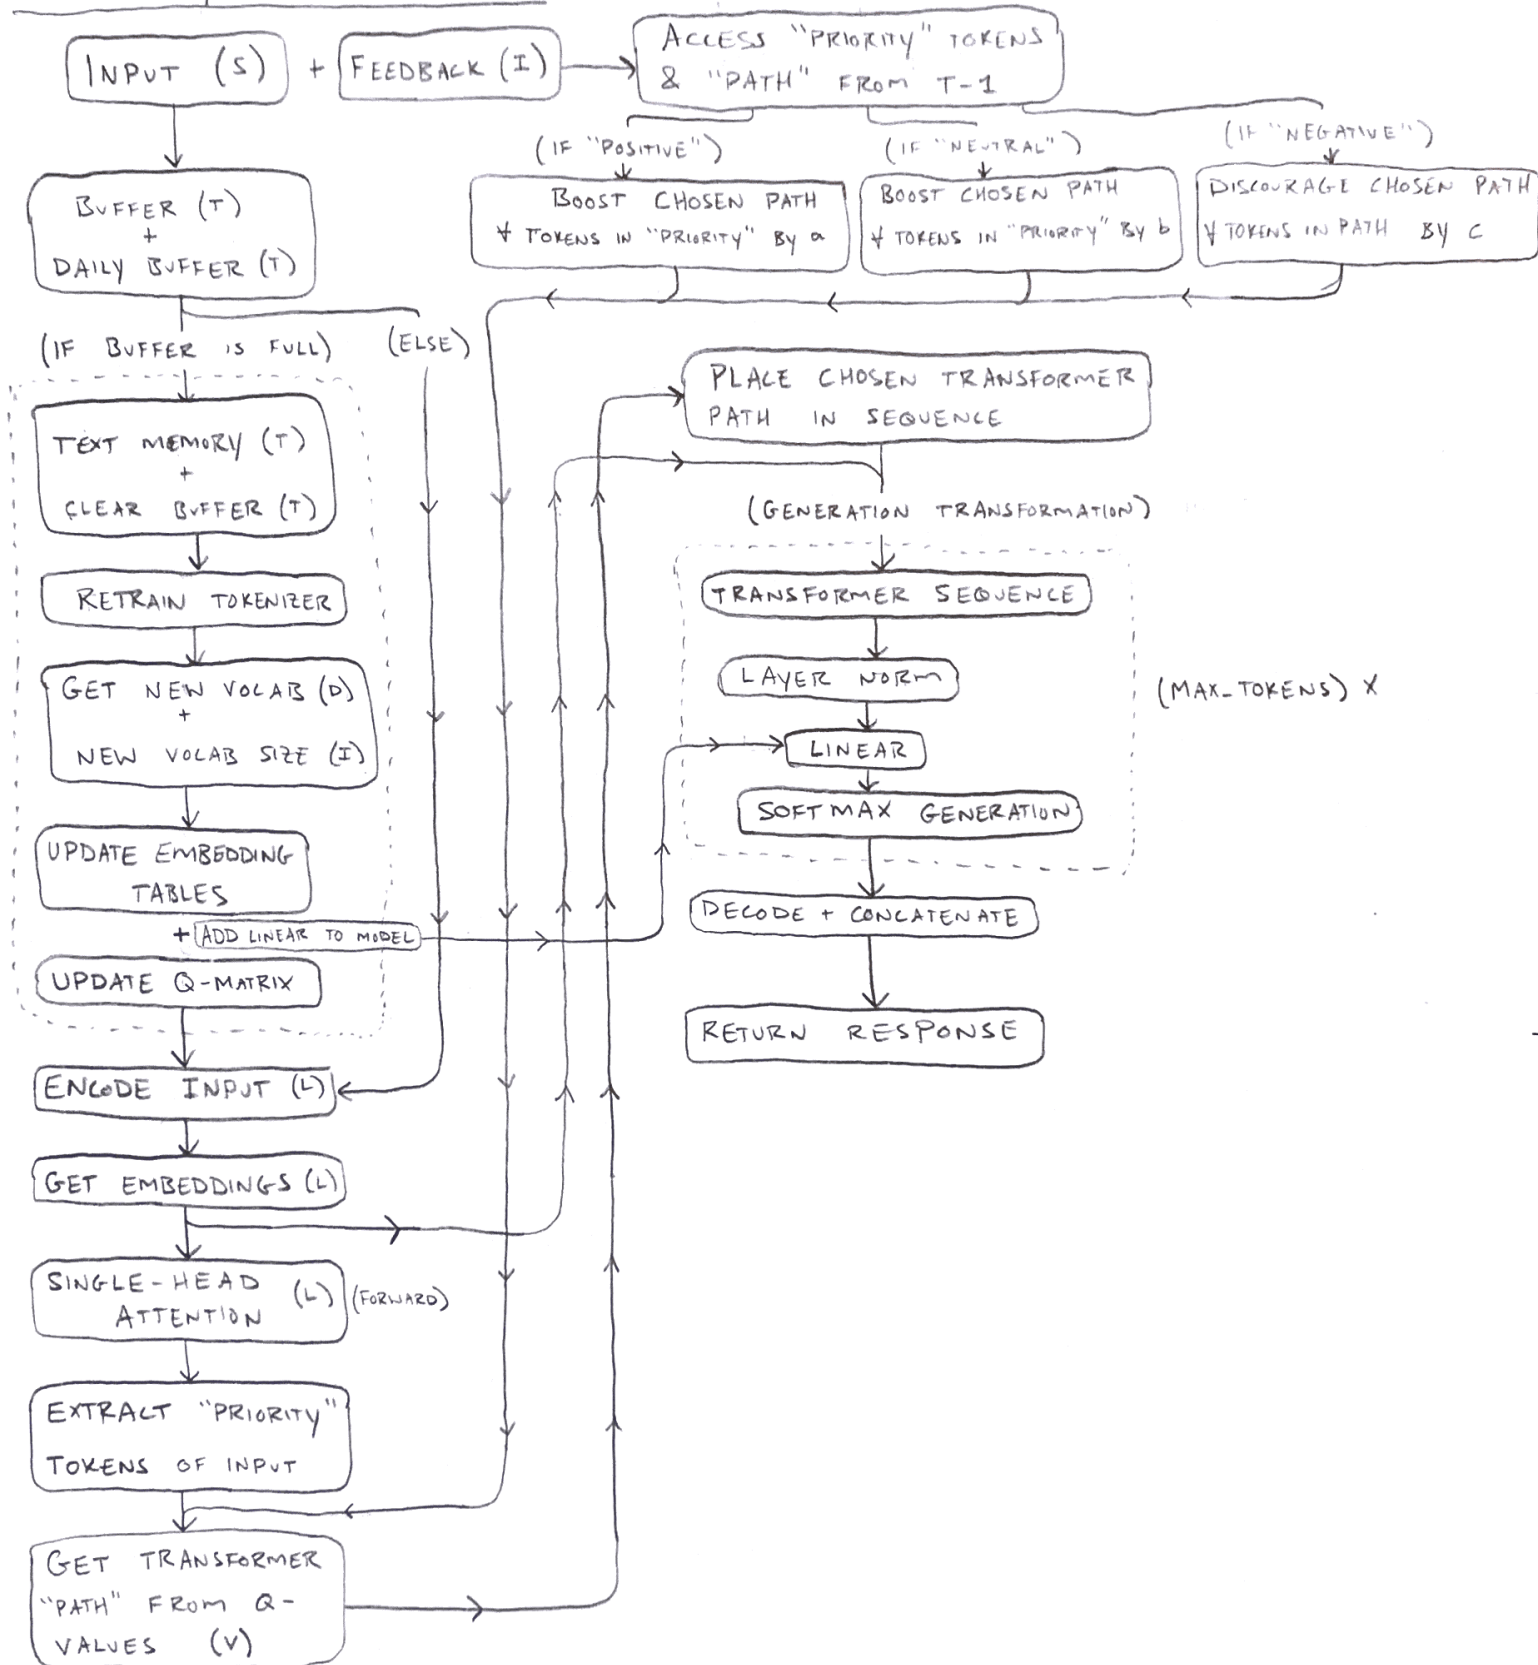 INPUT (S)
+
FEEDBACK (I)
ACCESS "PRIORITY" TOKENS
& "PATH" FROM T-1
(IF "POSITIVE")
(IF "NEUTRAL")
(IF "NEGATIVE")
BOOST CHOSEN PATH
∀ TOKENS IN "PRIORITY" BY a
BOOST CHOSEN PATH
∀ TOKENS IN "PRIORITY" BY b
DISCOURAGE CHOSEN PATH
∀ TOKENS IN PATH BY C
BUFFER (T)
+
DAILY BUFFER (T)
(IF BUFFER IS FULL)
(ELSE)
TEXT MEMORY (T)
+
CLEAR BUFFER (T)
RETRAIN TOKENIZER
GET NEW VOLAB (D)
+
NEW VOLAB SIZE (I)
UPDATE EMBEDDING
TABLES
+ ADD LINEAR TO MODEL
UPDATE Q-MATRIX
ENCODE INPUT (L)
GET EMBEDDINGS (L)
SINGLE-HEAD
ATTENTION
(L)
(FORWARD)
EXTRACT "PRIORITY"
TOKENS OF INPUT
GET TRANSFORMER
"PATH" FROM Q-
VALUES (V)
PLACE CHOSEN TRANSFORMER
PATH IN SEQUENCE
(GENERATION TRANSFORMATION)
TRANSFORMER SEQUENCE
LAYER NORM
LINEAR
SOFTMAX GENERATION
(MAX_TOKENS) X
DECODE + CONCATENATE
RETURN RESPONSE